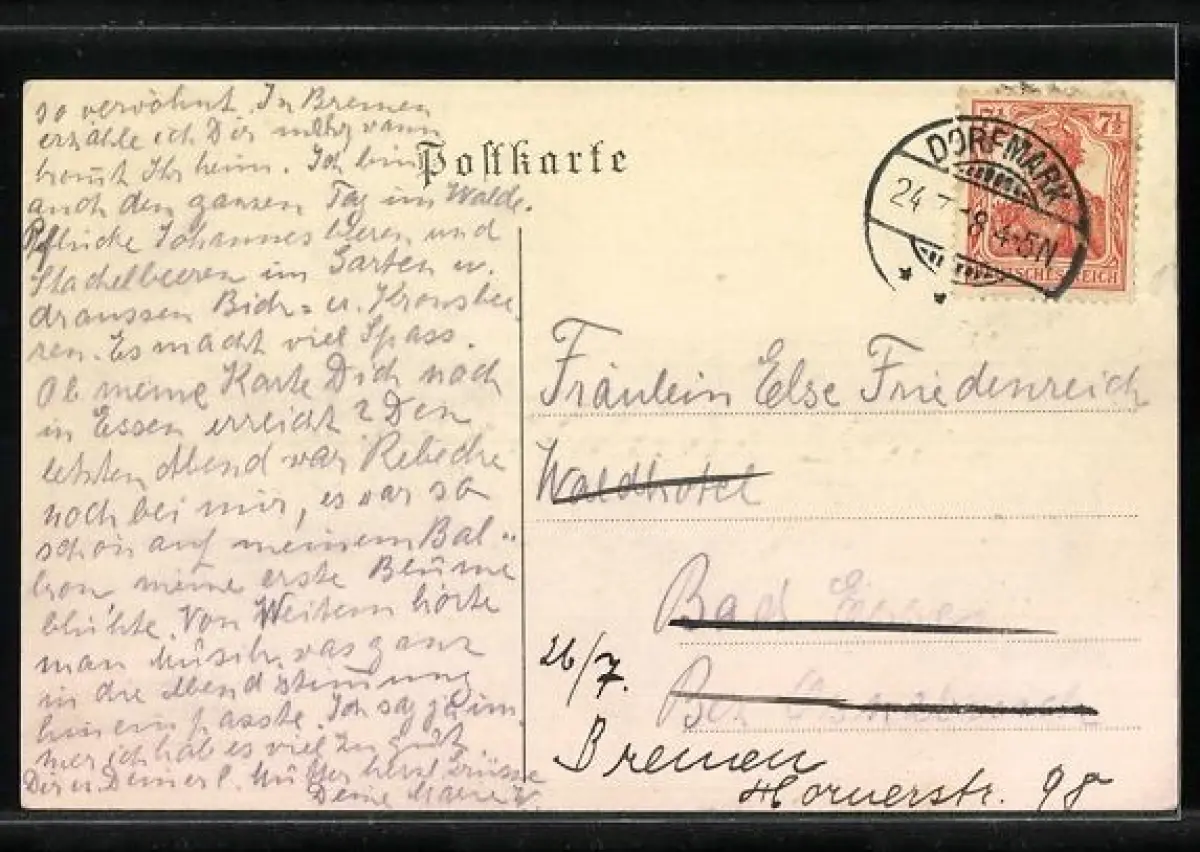 so verwöhnt. In Bremen
erzähle ich Dir mehr, wann
kommt Ihr heim. Ich bin
auch den ganzen Tag im Walde.
Pflücke Johannesbeeren und
Stachelbeeren im Garten u.
draussen Bick- u. Kronsbee-
ren. Es macht viel Spass.
Ob meine Karte Dich noch
in Essen erreicht? Den
letzten Abend war
noch bei mir, es war so
schön auf meinem Bal-
kon meine erste Blume
blühte. Von Weitem hörte
man Musik, was ganz
in die Abendstimmung
hineinpasste. Ich sag ja im-
mer ich hab es viel zu gut.
Dir u. Deiner l. Mutter herzl. Grüsse
Deine
Postkarte
7½ 7½
DORFMARK
24.7. 8 4-5N
DEUTSCHES REICH
Fräulein Else Friedenreich
Waldhotel
Bad Essen
Bez. Osnabrück
26/7.
Bremen
Hornerstr. 98